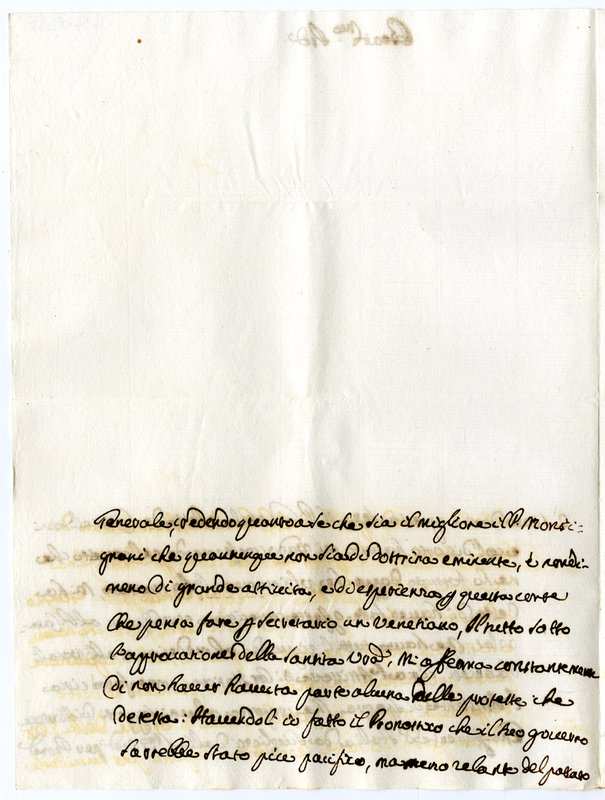 Generale, credendo quanto a se che sia il migliore il P. Monsi=
gnani che quantunque non sia di dottrina eminente, è nondi=
meno di grande attività, e di esperienza p questa corte
Che pensa fare p secretario un Venetiano, Il tutto sotto
l'approvatione della Santità Vrã, Mi afferma constantemente
di non haver havuta parte alcuna nelle proteste che
detesta: Havendoli io fatto il Pronostico che il suo governo
sarebbe stato più pacifico, ma meno zelante del passato